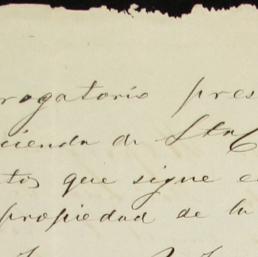 rogatorio pres
cienda de Sta C
tos que sigue e
propiedad de la